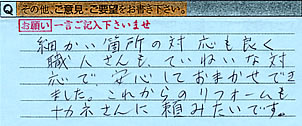 Q その他、ご意見・ご要望をお書き下さい。
お願い 一言ご記入下さいませ
細かい箇所の対応も良く
職人さんも、ていねいな対
応で、安心しておまかせでき
ました。これからのリフォームも
ナカネさんに頼みたいです。